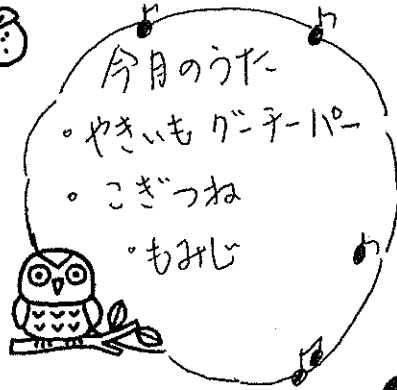 今月のうた
・やきいも グーチーパー
・こぎつね
・もみじ